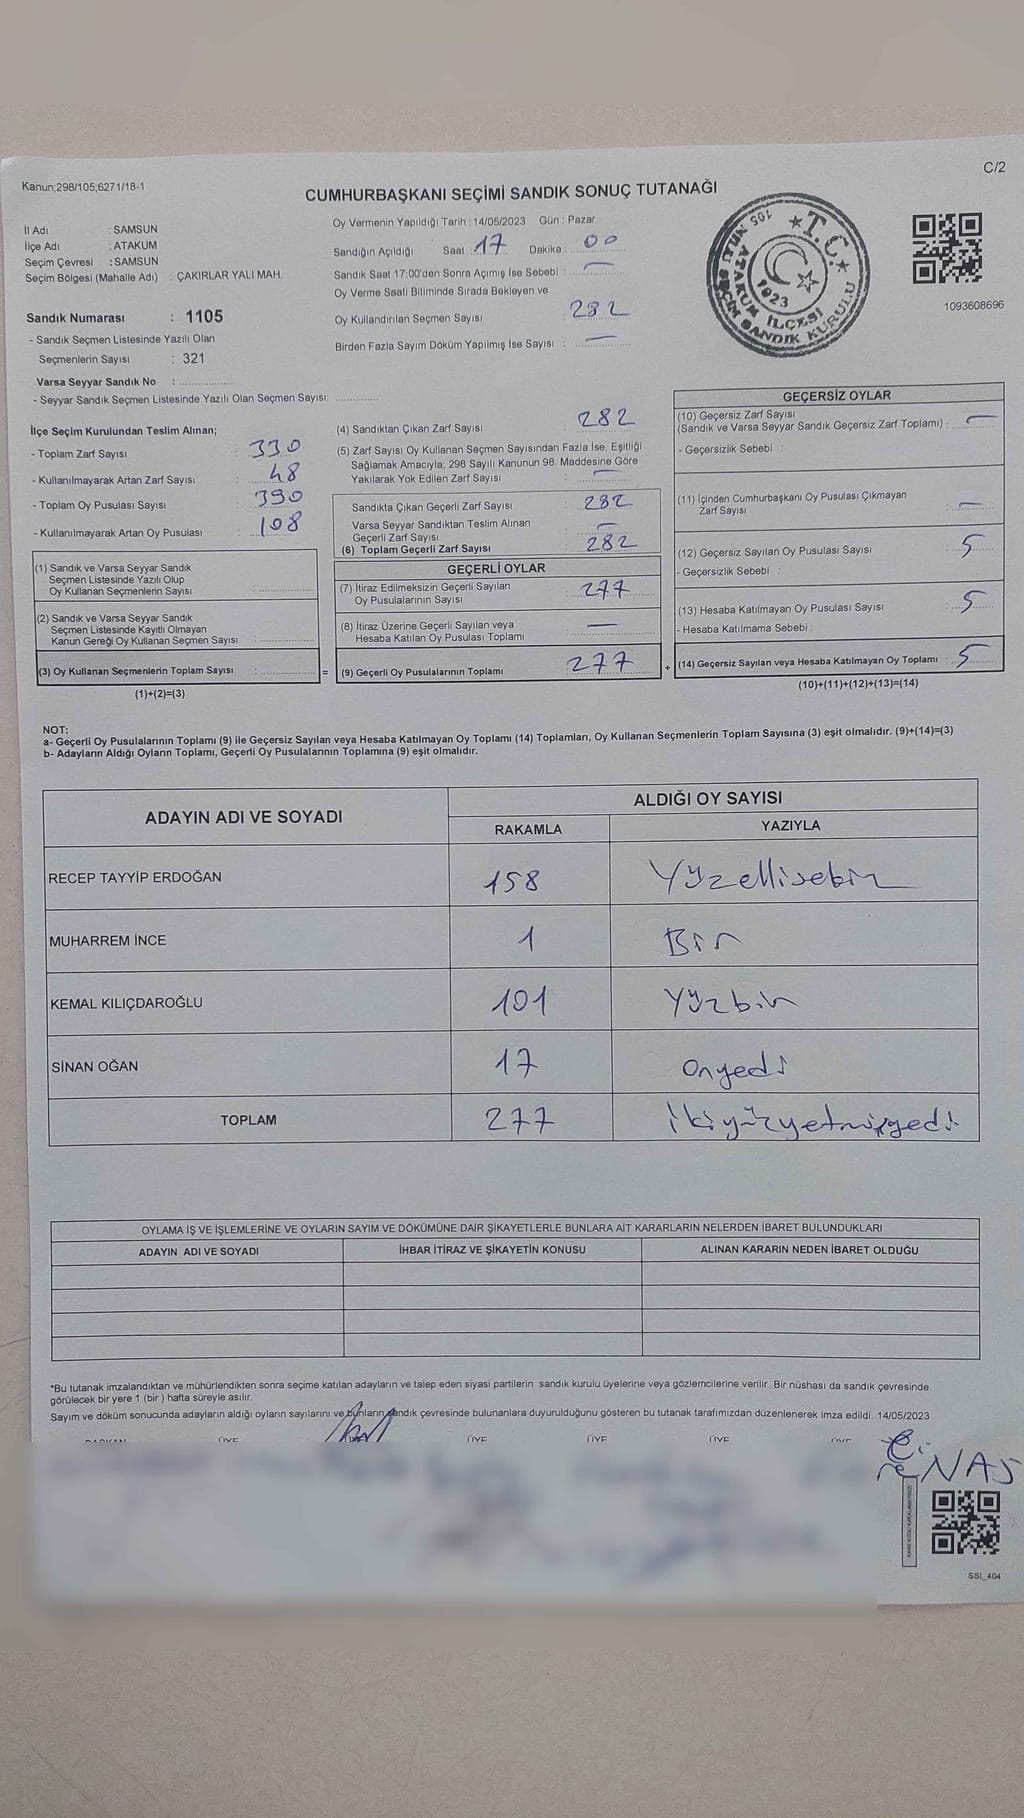 Kanun;298/105;6271/18-1
C/2
CUMHURBAŞKANI SEÇİMİ SANDIK SONUÇ TUTANAĞI
İl Adı : SAMSUN
İlçe Adı : ATAKUM
Seçim Çevresi : SAMSUN
Seçim Bölgesi (Mahalle Adı) : ÇAKIRLAR YALI MAH.
Sandık Numarası : 1105
- Sandık Seçmen Listesinde Yazılı Olan
Seçmenlerin Sayısı : 321
Varsa Seyyar Sandık No :
- Seyyar Sandık Seçmen Listesinde Yazılı Olan Seçmen Sayısı:
Oy Vermenin Yapıldığı Tarih : 14/05/2023 Gün : Pazar
Sandığın Açıldığı Saat : 17 Dakika : 00
Sandık Saat 17:00'den Sonra Açımış İse Sebebi : —
Oy Verme Saati Bitiminde Sırada Bekleyen ve
Oy Kullandırılan Seçmen Sayısı : 282
Birden Fazla Sayım Döküm Yapılmış İse Sayısı : —
★ T.C ★
1923
105 NOLU SEÇİM SANDIK KURULU
ATAKUM İLÇESİ
1093608696
İlçe Seçim Kurulundan Teslim Alınan;
- Toplam Zarf Sayısı : 330
- Kullanılmayarak Artan Zarf Sayısı : 48
- Toplam Oy Pusulası Sayısı : 390
- Kullanılmayarak Artan Oy Pusulası : 108
(1) Sandık ve Varsa Seyyar Sandık
Seçmen Listesinde Yazılı Olup
Oy Kullanan Seçmenlerin Sayısı :
(2) Sandık ve Varsa Seyyar Sandık
Seçmen Listesinde Kayıtlı Olmayan
Kanun Gereği Oy Kullanan Seçmen Sayısı :
(3) Oy Kullanan Seçmenlerin Toplam Sayısı : =
(1)+(2)=(3)
(4) Sandıktan Çıkan Zarf Sayısı : 282
(5) Zarf Sayısı Oy Kullanan Seçmen Sayısından Fazla İse, Eşitliği
Sağlamak Amacıyla; 298 Sayılı Kanunun 98. Maddesine Göre
Yakılarak Yok Edilen Zarf Sayısı : —
Sandıkta Çıkan Geçerli Zarf Sayısı : 282
Varsa Seyyar Sandıktan Teslim Alınan
Geçerli Zarf Sayısı : —
(6) Toplam Geçerli Zarf Sayısı : 282
GEÇERLİ OYLAR
(7) İtiraz Edilmeksizin Geçerli Sayılan
Oy Pusulalarının Sayısı : 277
(8) İtiraz Üzerine Geçerli Sayılan veya
Hesaba Katılan Oy Pusulası Toplamı : —
(9) Geçerli Oy Pusulalarının Toplamı : 277 +
GEÇERSİZ OYLAR
(10) Geçersiz Zarf Sayısı
(Sandık ve Varsa Seyyar Sandık Geçersiz Zarf Toplamı) : —
- Geçersizlik Sebebi :
(11) İçinden Cumhurbaşkanı Oy Pusulası Çıkmayan
Zarf Sayısı : —
(12) Geçersiz Sayılan Oy Pusulası Sayısı : 5
- Geçersizlik Sebebi :
(13) Hesaba Katılmayan Oy Pusulası Sayısı : 5
- Hesaba Katılmama Sebebi :
(14) Geçersiz Sayılan veya Hesaba Katılmayan Oy Toplamı : 5
(10)+(11)+(12)+(13)=(14)
NOT:
a- Geçerli Oy Pusulalarının Toplamı (9) ile Geçersiz Sayılan veya Hesaba Katılmayan Oy Toplamı (14) Toplamları, Oy Kullanan Seçmenlerin Toplam Sayısına (3) eşit olmalıdır. (9)+(14)=(3)
b- Adayların Aldığı Oyların Toplamı, Geçerli Oy Pusulalarının Toplamına (9) eşit olmalıdır.
ADAYIN ADI VE SOYADI ALDIĞI OY SAYISI
RAKAMLA YAZIYLA
RECEP TAYYİP ERDOĞAN 158 Yüzellisebiz
MUHARREM İNCE 1 Bir
KEMAL KILIÇDAROĞLU 101 Yüzbir
SİNAN OĞAN 17 Onyedi
TOPLAM 277 ikiyüzyetmişyedi
OYLAMA İŞ VE İŞLEMLERİNE VE OYLARIN SAYIM VE DÖKÜMÜNE DAİR ŞİKAYETLERLE BUNLARA AİT KARARLARIN NELERDEN İBARET BULUNDUKLARI
ADAYIN ADI VE SOYADI İHBAR İTİRAZ VE ŞİKAYETİN KONUSU ALINAN KARARIN NEDEN İBARET OLDUĞU
*Bu tutanak imzalandıktan ve mühürlendikten sonra seçime katılan adayların ve talep eden siyasi partilerin sandık kurulu üyelerine veya gözlemcilerine verilir .Bir nüshası da sandık çevresinde
görülecek bir yere 1 (bir ) hafta süreyle asılır.
Sayım ve döküm sonucunda adayların aldığı oyların sayılarını ve bunların sandık çevresinde bulunanlara duyurulduğunu gösteren bu tutanak tarafımızdan düzenlenerek imza edildi. 14/05/2023
BAŞKAN ÜYE ÜYE ÜYE ÜYE ÜYE
SSI_404